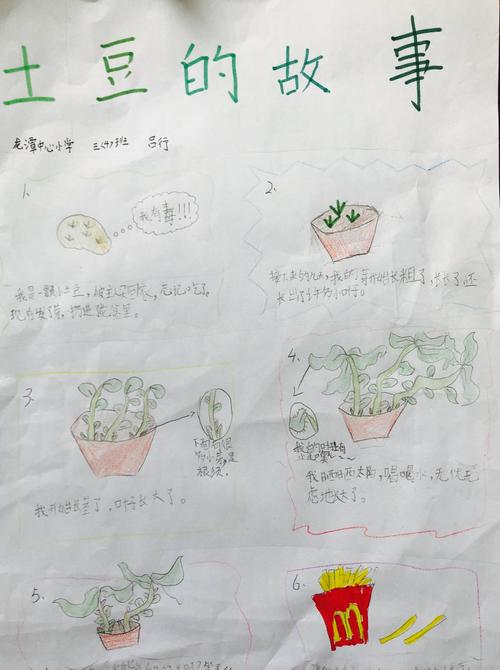 土豆的故事
龙潭中心小学 三(4)班 吕行
1、
我有毒!!!
我是一颗小土豆,被主人买回家,忘记吃了,
现在发了芽,扔进院里。
2、
接下来的几天,我的芽开始长粗了,长长了,还
长出了许多小叶子。
3、
下面有很
多小芽是
根须。
我开始长茎了,叶子长大了。
4、
我的叶
我晒晒太阳,喝喝水,无忧无
虑地长大了。
5、
6、